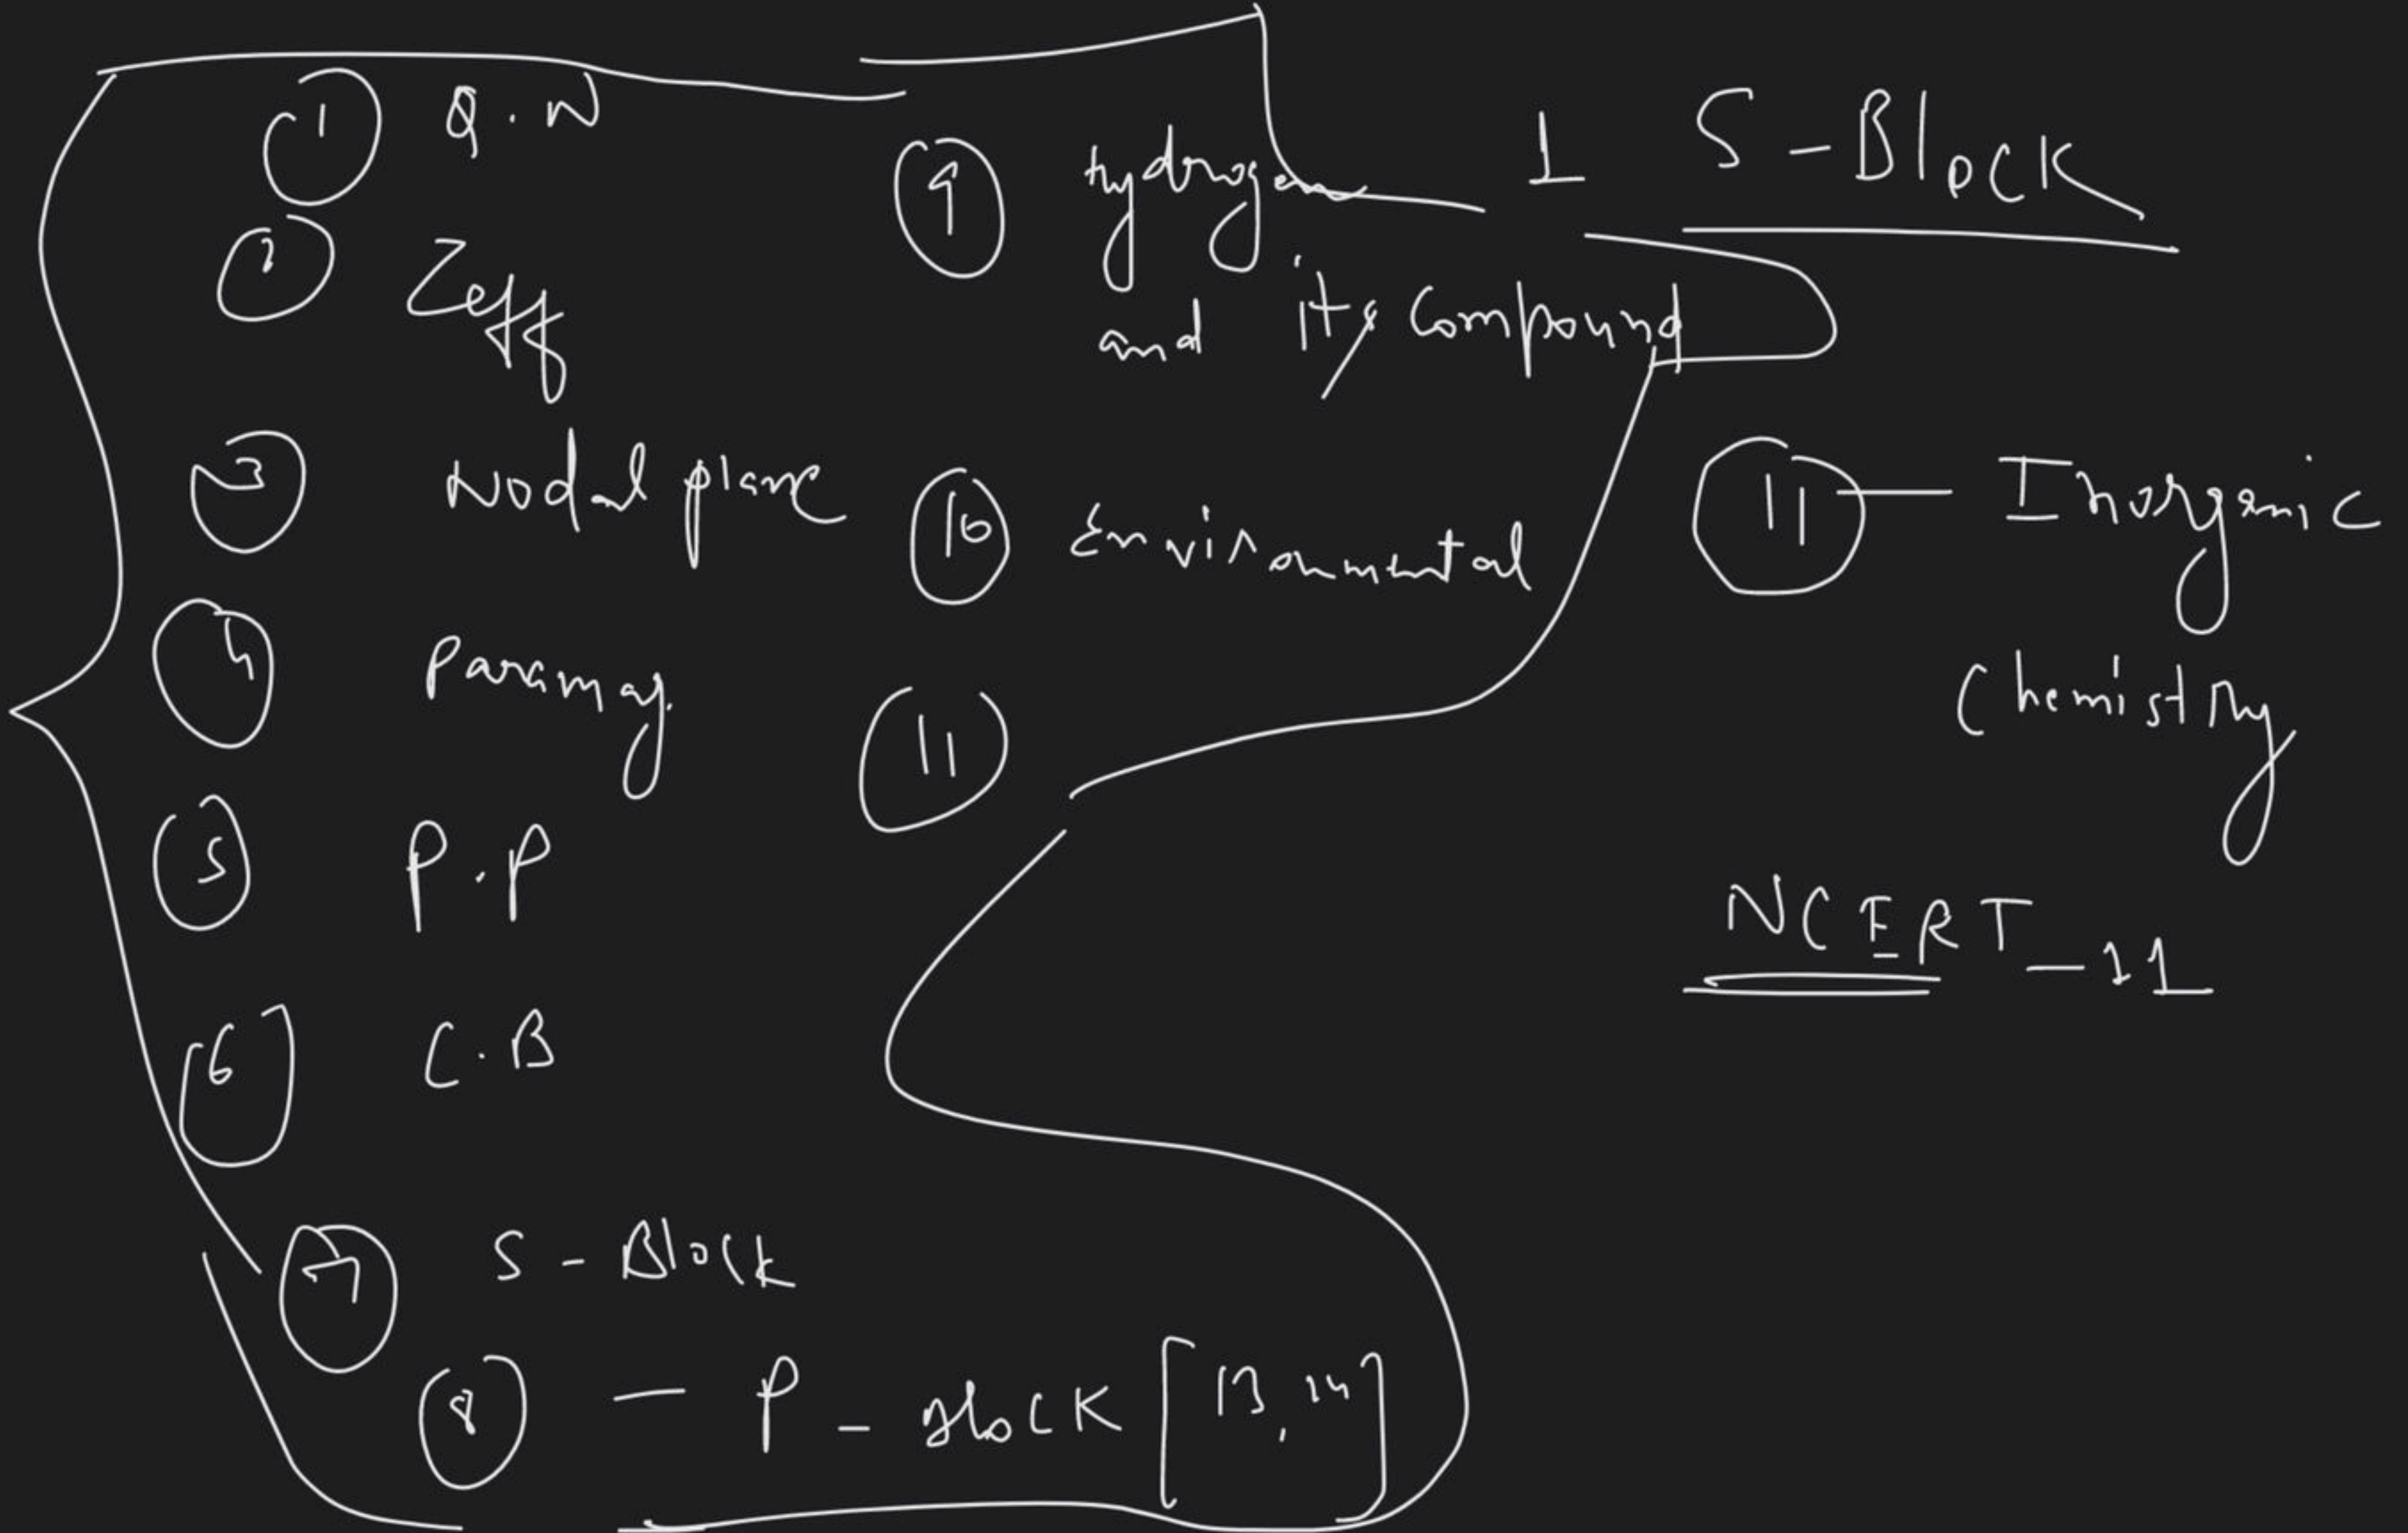 1 Q.N
2 Zeff
3 Nodal plane
4 Paramag.
5 P.P
6 C.B
7 S-Block
8 — P-Block [13, 14]
9 Hydrogen
and its Compound
10 Environmental
11
1 S-Block
11 — Inorganic
Chemistry
NCERT-11